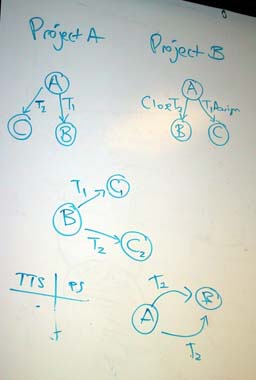 Project A
Project B
A
T2
T1
C
B
A
Close T2
T1 Assign
B
C
T1
C1
B
T2
C2
TTS
PS
T2
A
B
T2